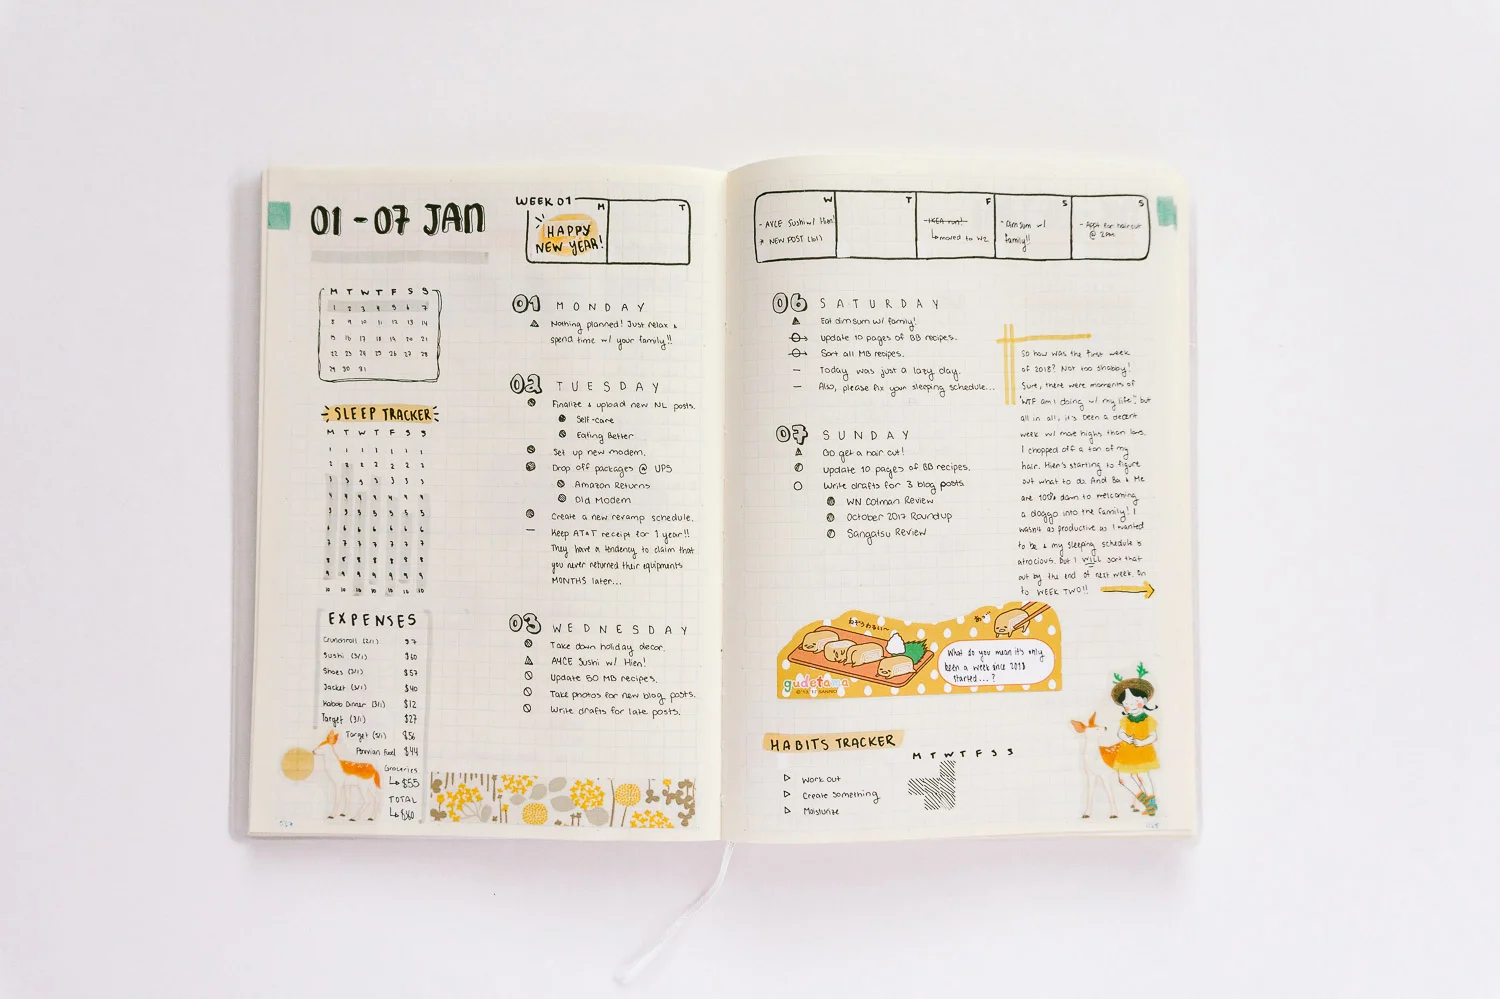 01 - 07 JAN
M T W T F S S
1 2 3 4 5 6 7
8 9 10 11 12 13 14
15 16 17 18 19 20 21
22 23 24 25 26 27 28
29 30 31
SLEEP TRACKER
M T W T F S S
1 1 1 1 1 1 1
2 2 2 2 2 2 2
3 3 3 3 3 3 3
4 4 4 4 4 4 4
5 5 5 5 5 5 5
6 6 6 6 6 6 6
7 7 7 7 7 7 7
8 8 8 8 8 8 8
9 9 9 9 9 9 9
10 10 10 10 10 10 10
EXPENSES
Crunchroll (2/1) $7
Sushi (3/1) $60
Shoes (3/1) $57
Jacket (3/1) $40
Kabob Dinner (3/1) $12
Target (3/1) $27
Target (5/1) $56
Fuel $44
Groceries
$55
TOTAL
WEEK 01
M
HAPPY
NEW YEAR!
T
01 MONDAY
Nothing planned! Just relax &
spend time w/ your family!!
02 TUESDAY
Finalize & upload new NL posts.
Self-care
Eating Better
Set up new modem.
Drop off packages @ UPS
Amazon Returns
Old Modem
Create a new revamp schedule.
Keep AT&T receipt for 1 year!!
They have a tendency to claim that
you never returned their equipments
MONTHS later...
03 WEDNESDAY
Take down holiday decor.
AYCE Sushi w/ Hien!
Update 50 MB recipes.
Take photos for new blog posts.
Write drafts for late posts.
W
- AYCE Sushi w/ Hien!
* NEW POST (bl)
T
F
- IKEA run!
moved to W2
S
- dim sum w/
family!!
S
- Appt for haircut
@ 2PM
06 SATURDAY
Eat dim sum w/ family!
Update 10 pages of BB recipes.
Sort all MB recipes.
— Today was just a lazy day.
— Also, please fix your sleeping schedule...
07 SUNDAY
Go get a hair cut!
Update 10 pages of BB recipes.
Write drafts for 3 blog posts.
WN Cotman Review
October 2017 Roundup
Sangatsu Review
So how was the first week
of 2018? Not too shabby!
Sure, there were moments of
"WTF am I doing w/ my life", but
all in all, it's been a decent
week w/ more highs than lows.
I chopped off a ton of my
hair. Hien's starting to figure
out what to do. And Ba & Me
are 100% down to welcoming
a doggo into the family! I
wasn't as productive as I wanted
to be & my sleeping schedule is
atrocious. But I WILL sort that
out by the end of next week. On
to WEEK TWO!!
gudetama
What do you mean it's only
been a week since 2018
started...?
HABITS TRACKER
M T W T F S S
Work out
Create something
Moisturize